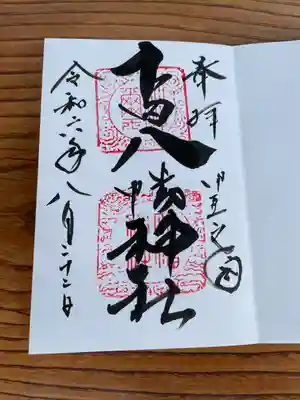 奉拝
伊豆之国
八幡神社
令和六年八月二十二日